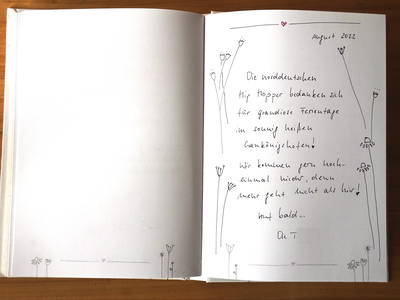 August 2022
Die norddeutschen
Hip Hopper bedanken sich
für grandiose Ferientage
im sonnig heißen
wir kommen gern noch
einmal wieder, denn
mehr geht nicht als hier!
bald...